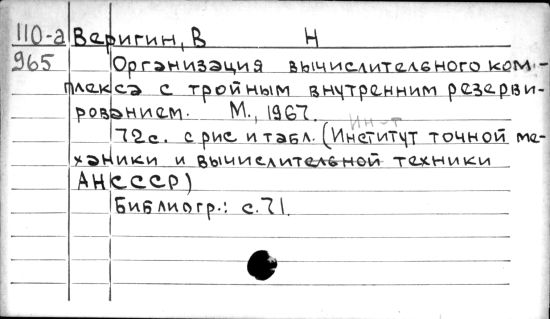 110-а Веригин, В Н
965 Организация вычислительного ком-
плекса с тройным внутренним резерви-
рованием. М., 1967.
Ин-т
72с. с рис и табл. (Институт точной ме-
ханики и вычислительной техники
АН СССР)
Библиогр.: с. 71.